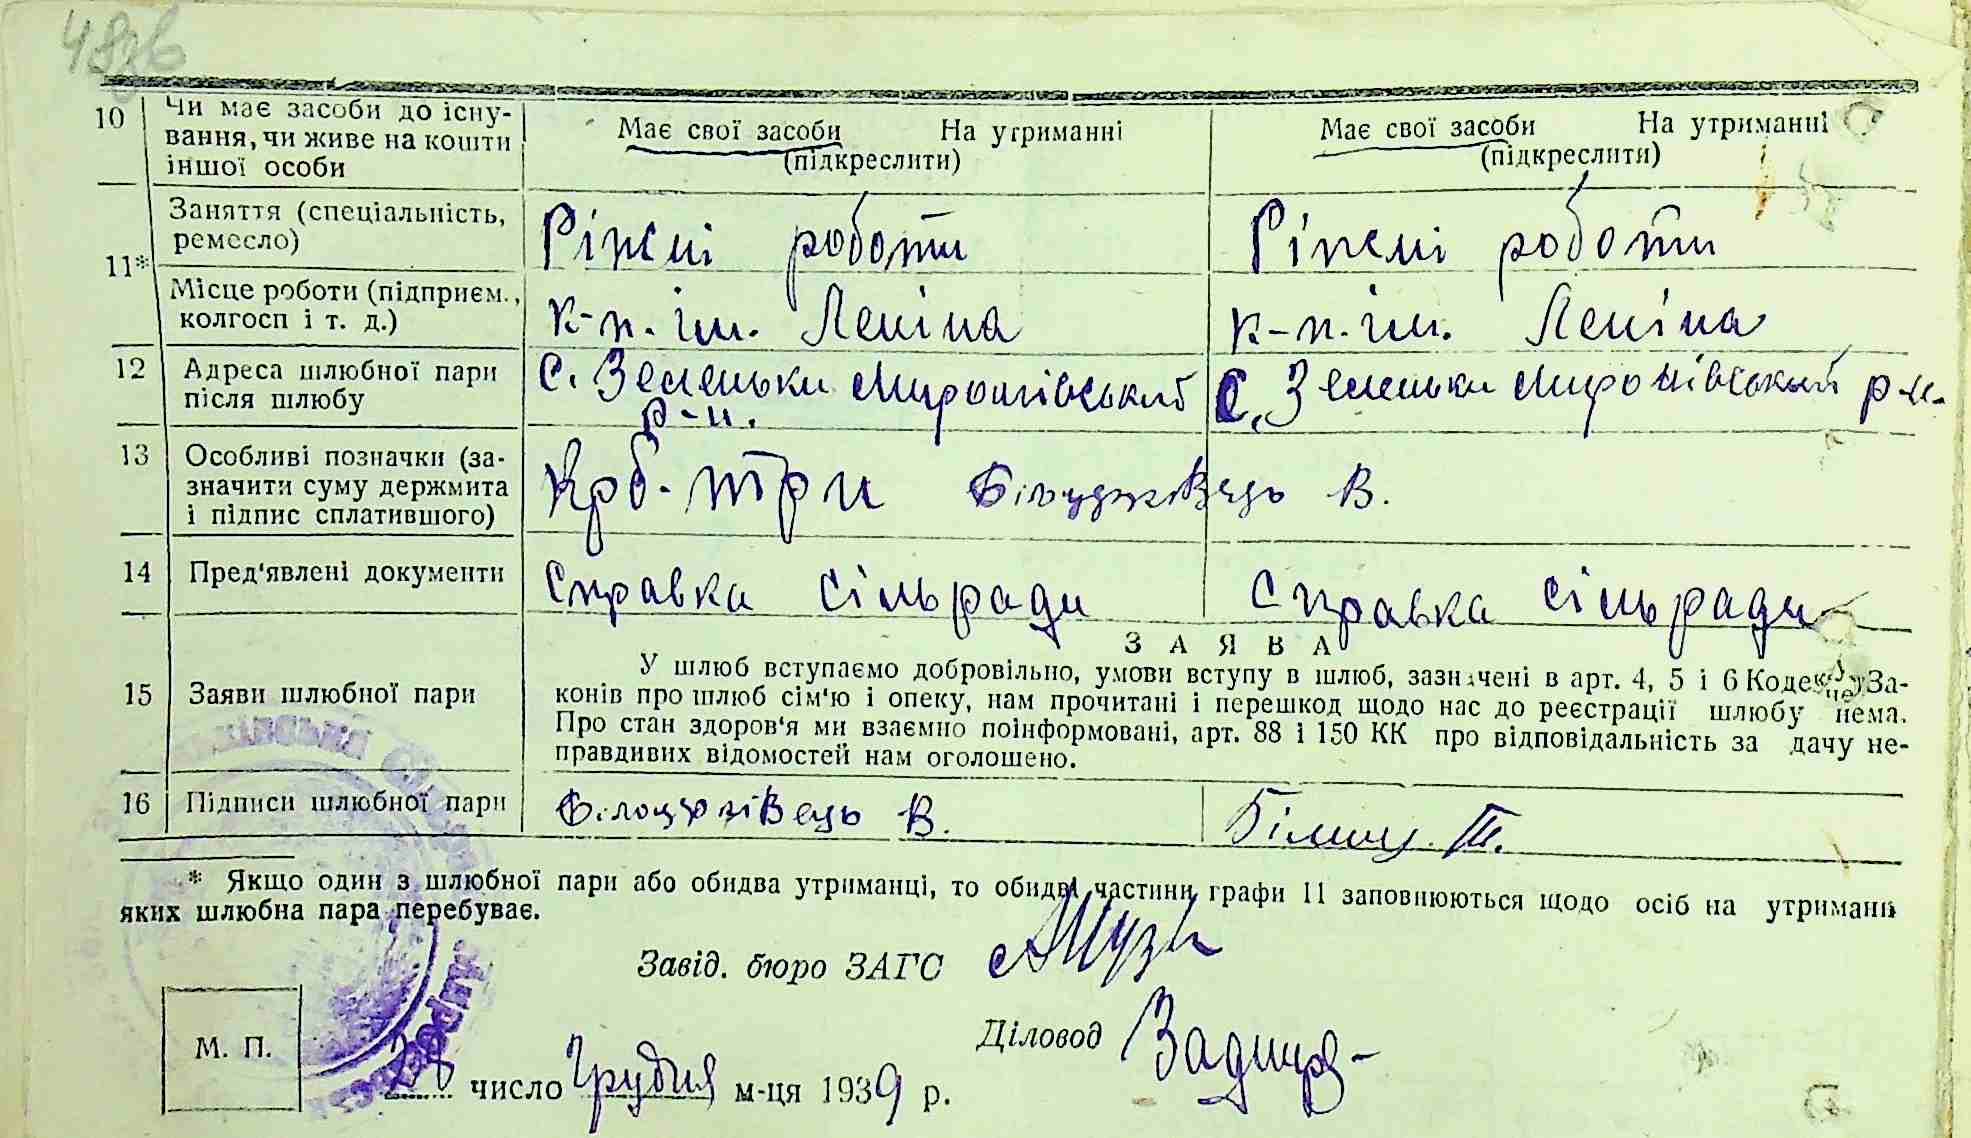 10 Чи має засоби до існу-
вання, чи живе на кошти
іншої особи
Має свої засоби На утриманні
(підкреслити)
Має свої засоби На утриманні
(підкреслити)
11* Заняття (спеціальність,
ремесло)
Ріжні роботи
Ріжні роботи
Місце роботи (підприєм.,
колгосп і т. д.)
к-п. ім. Леніна
к-п. ім. Леніна
12 Адреса шлюбної пари
після шлюбу
с. Зеленьки Миронівський
р-н.
с. Зеленьки Миронівський р-н.
13 Особливі позначки (за-
значити суму держмита
і підпис сплатившого)
Крб. три В.
14 Пред'явлені документи
Справка сільради
Справка сільради
15 Заяви шлюбної пари
ЗАЯВА
У шлюб вступаємо добровільно, умови вступу в шлюб, зазначені в арт. 4, 5 і 6 Кодексу За-
конів про шлюб сім'ю і опеку, нам прочитані і перешкод щодо нас до реєстрації шлюбу нема.
Про стан здоров'я ми взаємно поінформовані, арт. 88 і 150 КК про відповідальність за дачу не-
правдивих відомостей нам оголошено.
16 Підписи шлюбної пари
В.
Т.
* Якщо один з шлюбної пари або обидва утриманці, то обидві частини графи 11 заповнюються щодо осіб на утриманні
яких шлюбна пара перебуває.
Завід. бюро ЗАГС
Діловод
М. П.
число Грудня м-ця 1939 р.